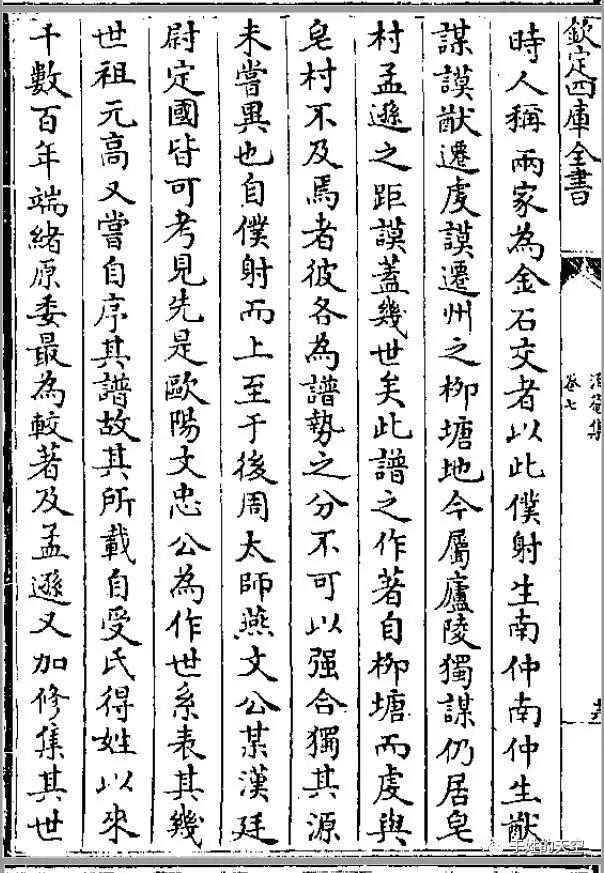 欽定四庫全書
泊菴集
卷七
時人稱兩家為金石交者以此僕射生南仲南仲生猷
謀謨猷遷虔謨遷州之栁塘地今屬廬陵獨謀仍居皂
村孟遜之距謨蓋幾世矣此譜之作著自栁塘而虔與
皂村不及焉者彼各為譜勢之分不可以强合獨其源
未嘗異也自僕射而上至于後周太師燕文公某漢廷
尉定國皆可考見先是歐陽文忠公為作世系表其幾
世祖元高又嘗自序其譜故其所載自受氏得姓以來
千數百年端緒原委最為較著及孟遜又加修集其世
于姓的天空